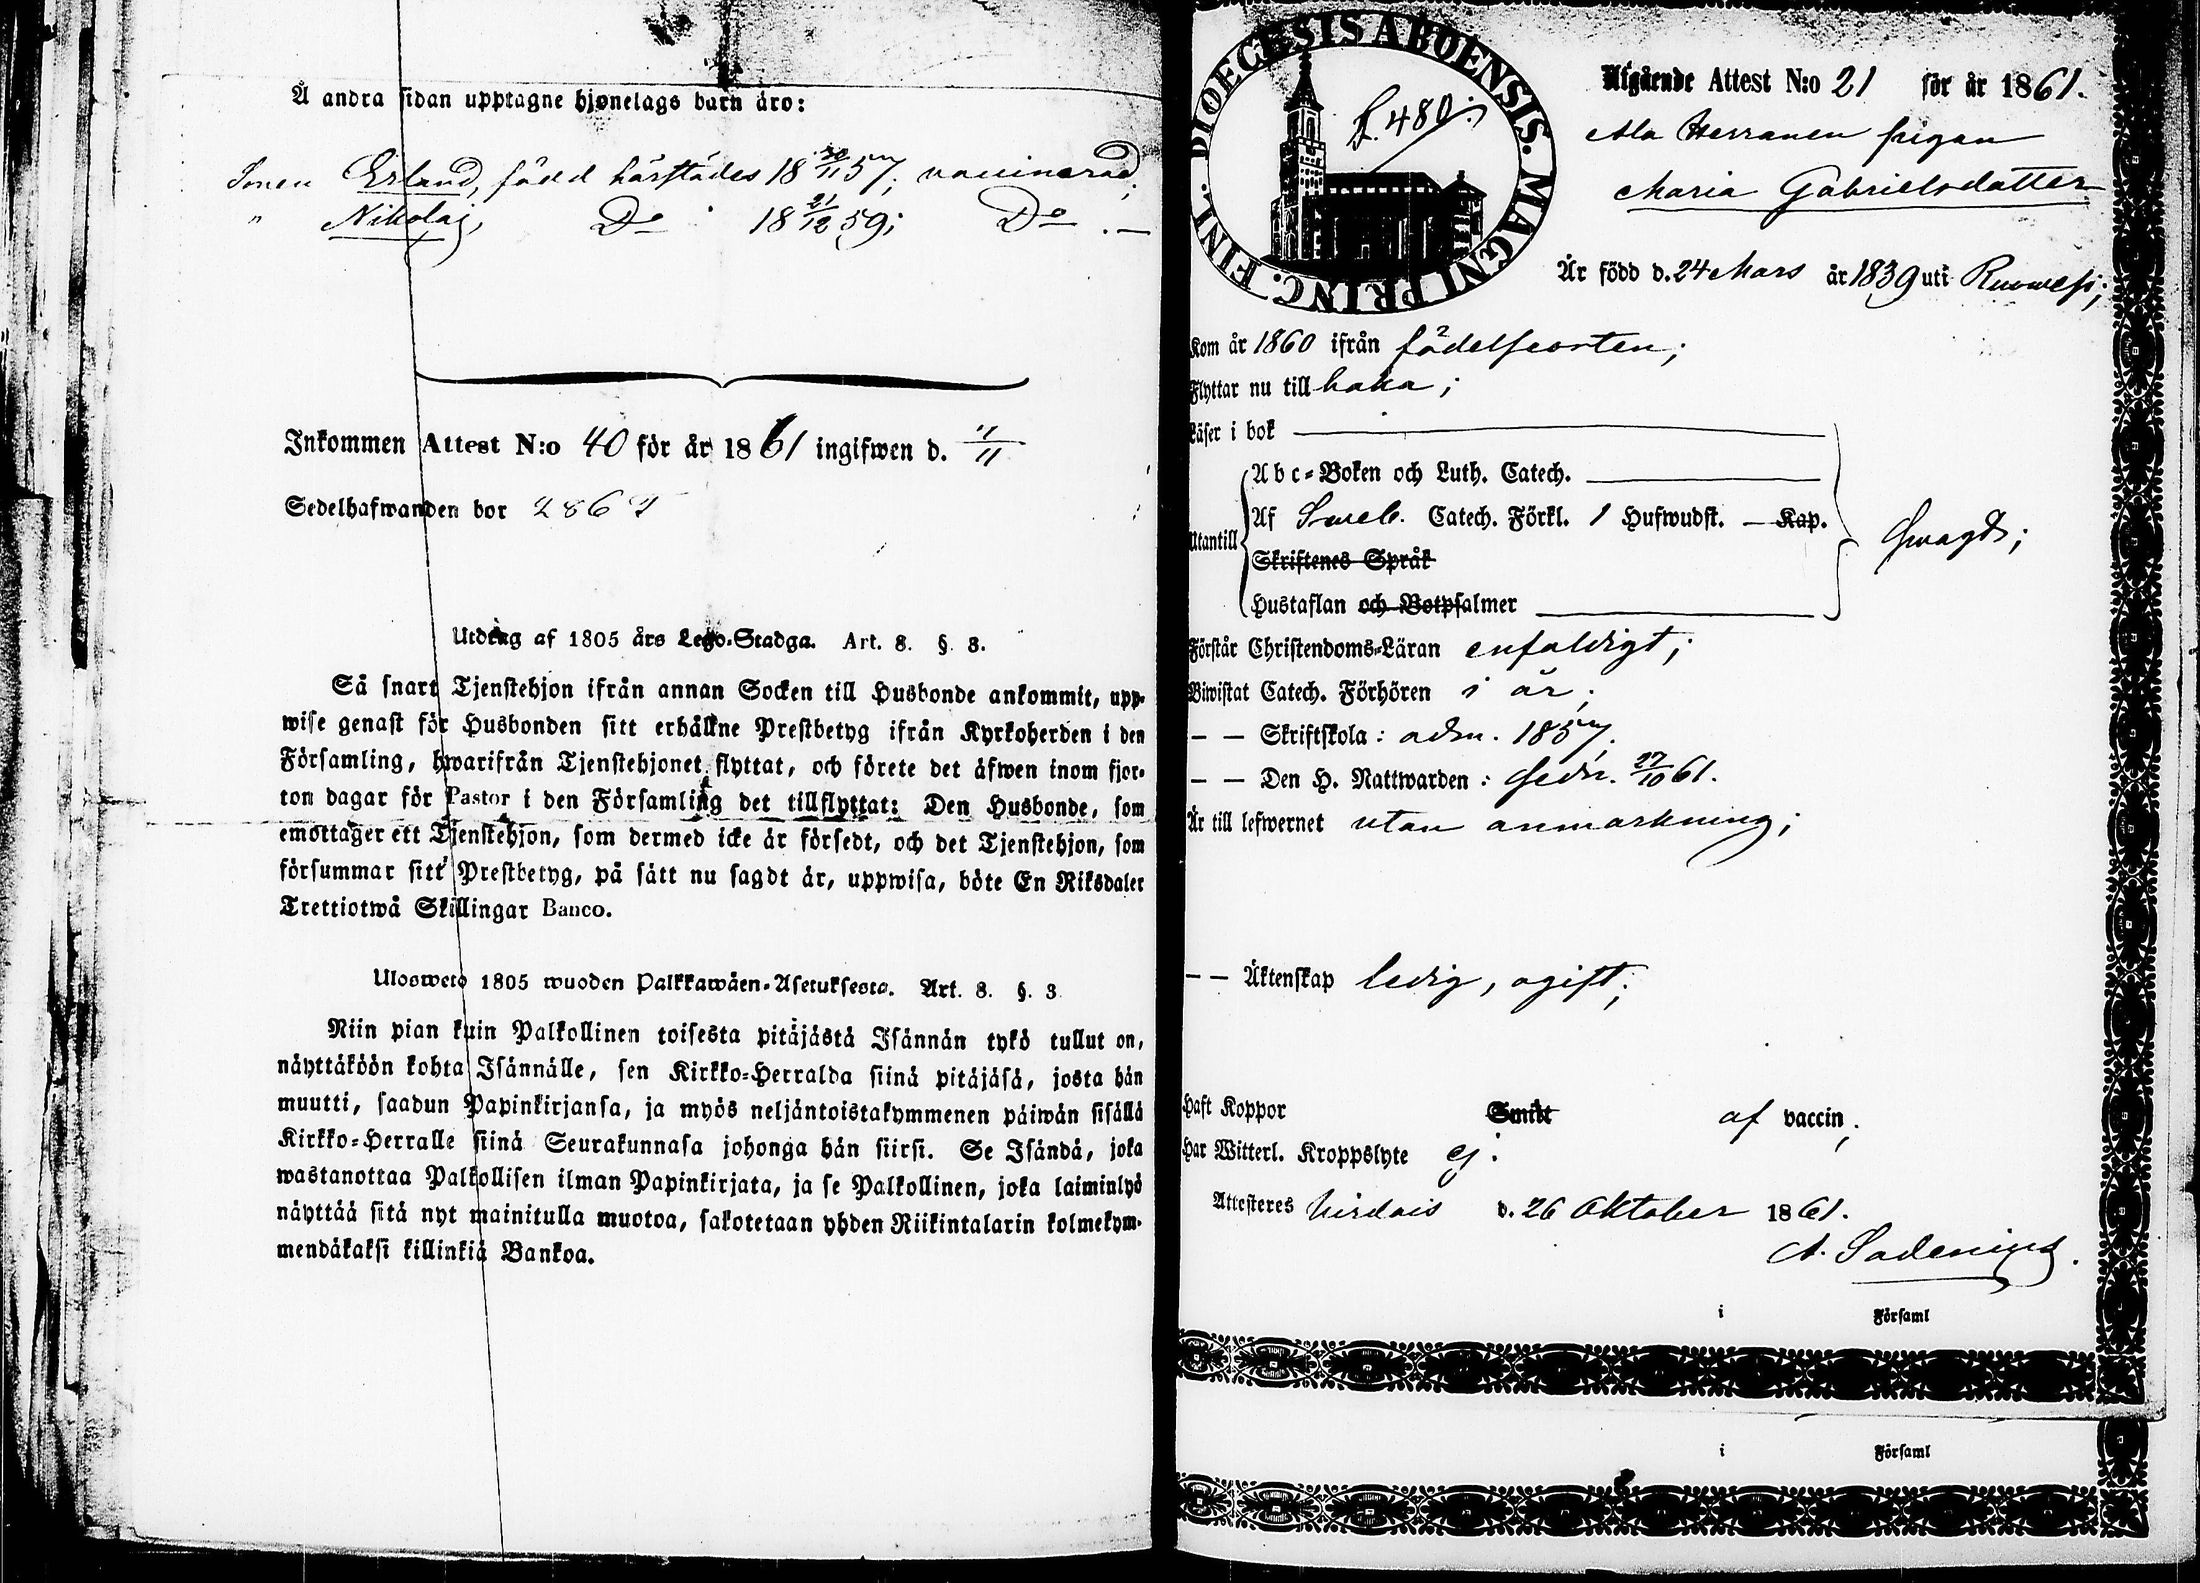 Å andra sidan upptagne hjonelags barn äro:
Sonen Erland, född härstädes 18 20/11 57; vaccinerad;
" Nikolaj, Do 18 21/12 59; Do . —
Inkommen Attest N:o 40 för år 1861 ingifwen d. 1/11
Sedelhafwanden bor
Utdrag af 1805 års Lego-Stadga. Art. 8. §. 3.
Så snart Tjenstehjon ifrån annan Socken till Husbonde ankommit, upp-
wise genast för Husbonden sitt erhållne Prestbetyg ifrån Kyrkoherden i den
Församling, hwarifrån Tjenstehjonet flyttat, och förete det äfwen inom fjor-
ton dagar för Pastor i den Församling det tillflyttat: Den Husbonde, som
emottager ett Tjenstehjon, som dermed icke är försedt, och det Tjenstehjon, som
försummar sitt Prestbetyg, på sätt nu sagdt är, uppwisa, böte En Riksdaler
Trettiotwå Skillingar Banco.
Ulosweto 1805 wuoden Palkkawäen-Asetuksesta. Art. 8. §. 3.
Niin pian kuin Palkollinen toisesta pitäjästä Isännän tykö tullut on,
näyttäköön kohta Isännälle, sen Kirkko-Herralda siinä pitäjäsä, josta hän
muutti, saadun Papinkirjansa, ja myös neljäntoistakymmenen päiwän sisällä
Kirkko-Herralle siinä Seurakunnasa johonga hän siirsi. Se Isändä, joka
wastanottaa Palkollisen ilman Papinkirjata, ja se Palkollinen, joka laiminlyö
näyttää sitä nyt mainitulla muotoa, sakotetaan yhden Riikintalarin kolmekym-
mendäkaksi killinkiä Bankoa.
DIOECESIS ABOENSIS. MAGNI PRINC. FINL.
f. 480.
Utgående Attest N:o 21 för år 1861.
Ala Herranen pigan
Maria Gabrielsdotter
Är född d. 24 Mars år 1839 uti Ruovesi;
Kom år 1860 ifrån födelseorten;
Flyttar nu till
Läser i bok
Abc-Boken och Luth. Catech.
Utantill
Af Sweb. Catech. Förkl. 1 Hufwudst. — Kap.
Skriftenes Språk
Hustaflan och Botpsalmer
swagt;
Förstår Christendoms-Läran enfaldigt;
Biwistat Catech. Förhören i år;
— — Skriftskola: adm. 1857.
— — Den H. Nattwarden: sedn. 27/10 61.
Är till lefwernet utan anmärkning;
— — Äktenskap ledig, ogift;
Haft Koppor Smitt af vaccin;
Har Witterl. Kroppslyte ej.
Attesteres Virdois d. 26 Oktober 1861.
A. Sadenius.
i Församl
i Församl